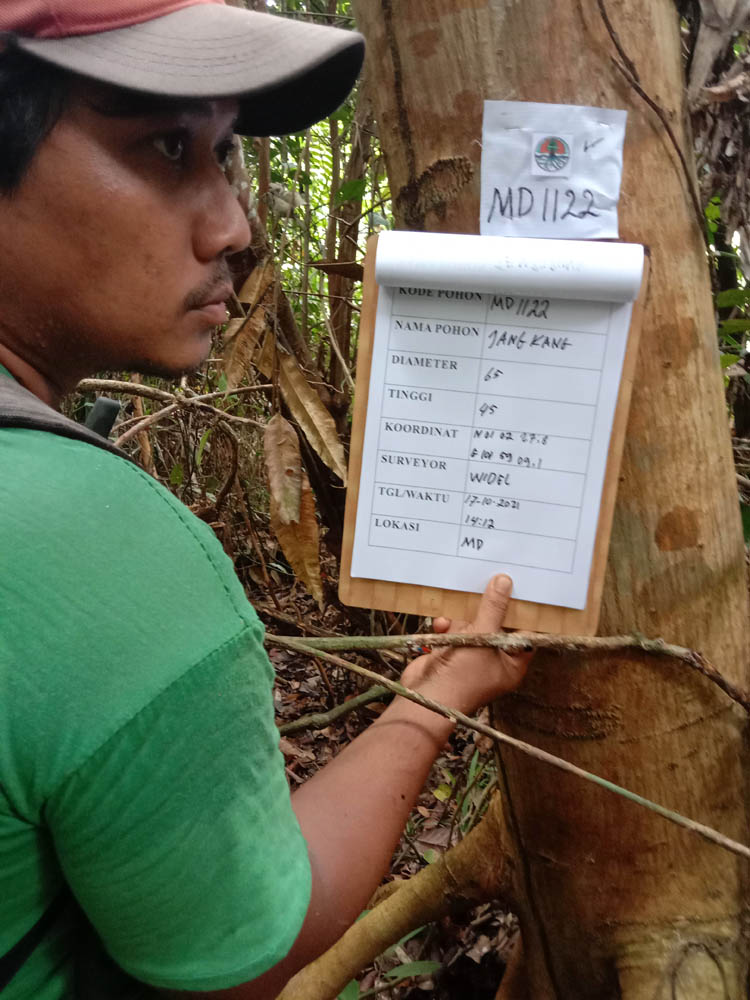 MD 1122
KODE POHON MD 1122
NAMA POHON JANG KANG
DIAMETER 65
TINGGI 45
KOORDINAT N 01 02 27.8
E 101 59 09.1
SURVEYOR WIDEL
TGL/WAKTU 17-10-2021
14:12
LOKASI MD